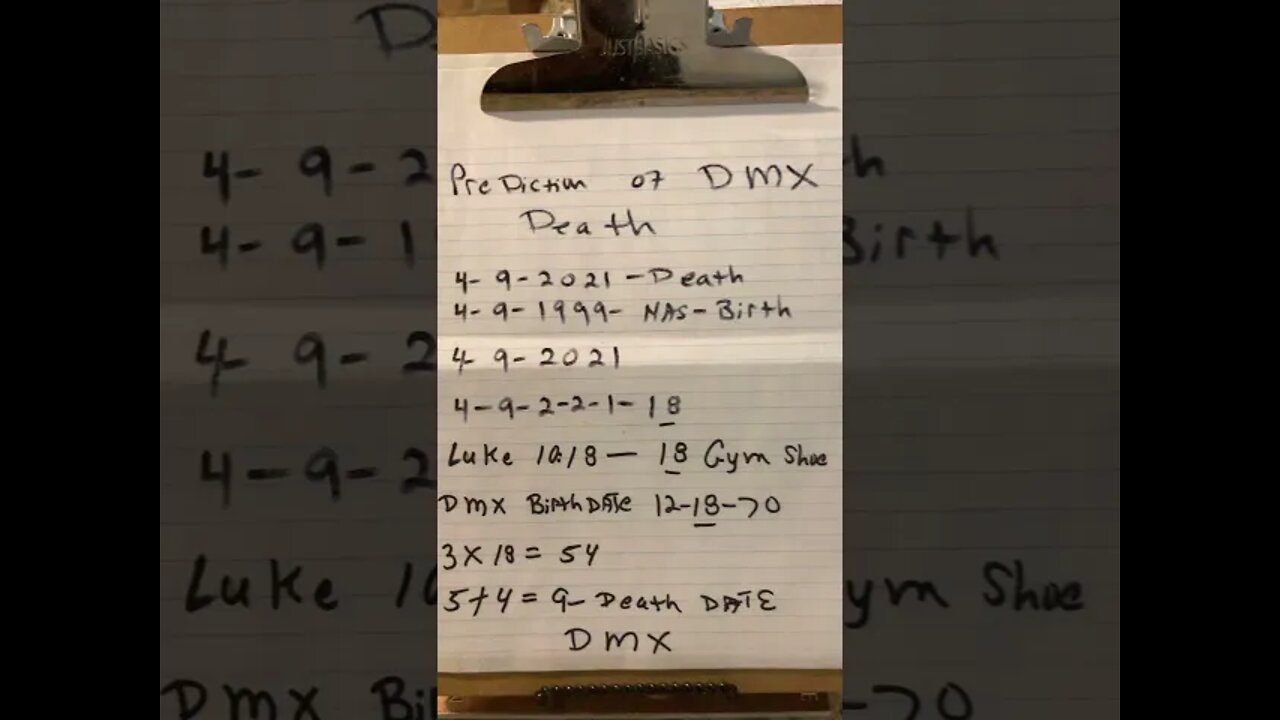 JUSTBASICS
PreDiction of DMX
Death
4-9-2021-Death
4-9-1999-NAS-Birth
4-9-2021
4-9-2-2-1-18
Luke 10:18 - 18 Gym Shoe
DMX BirthDATe 12-18-70
3x18=54
5+4=9-Death DATE
DMX